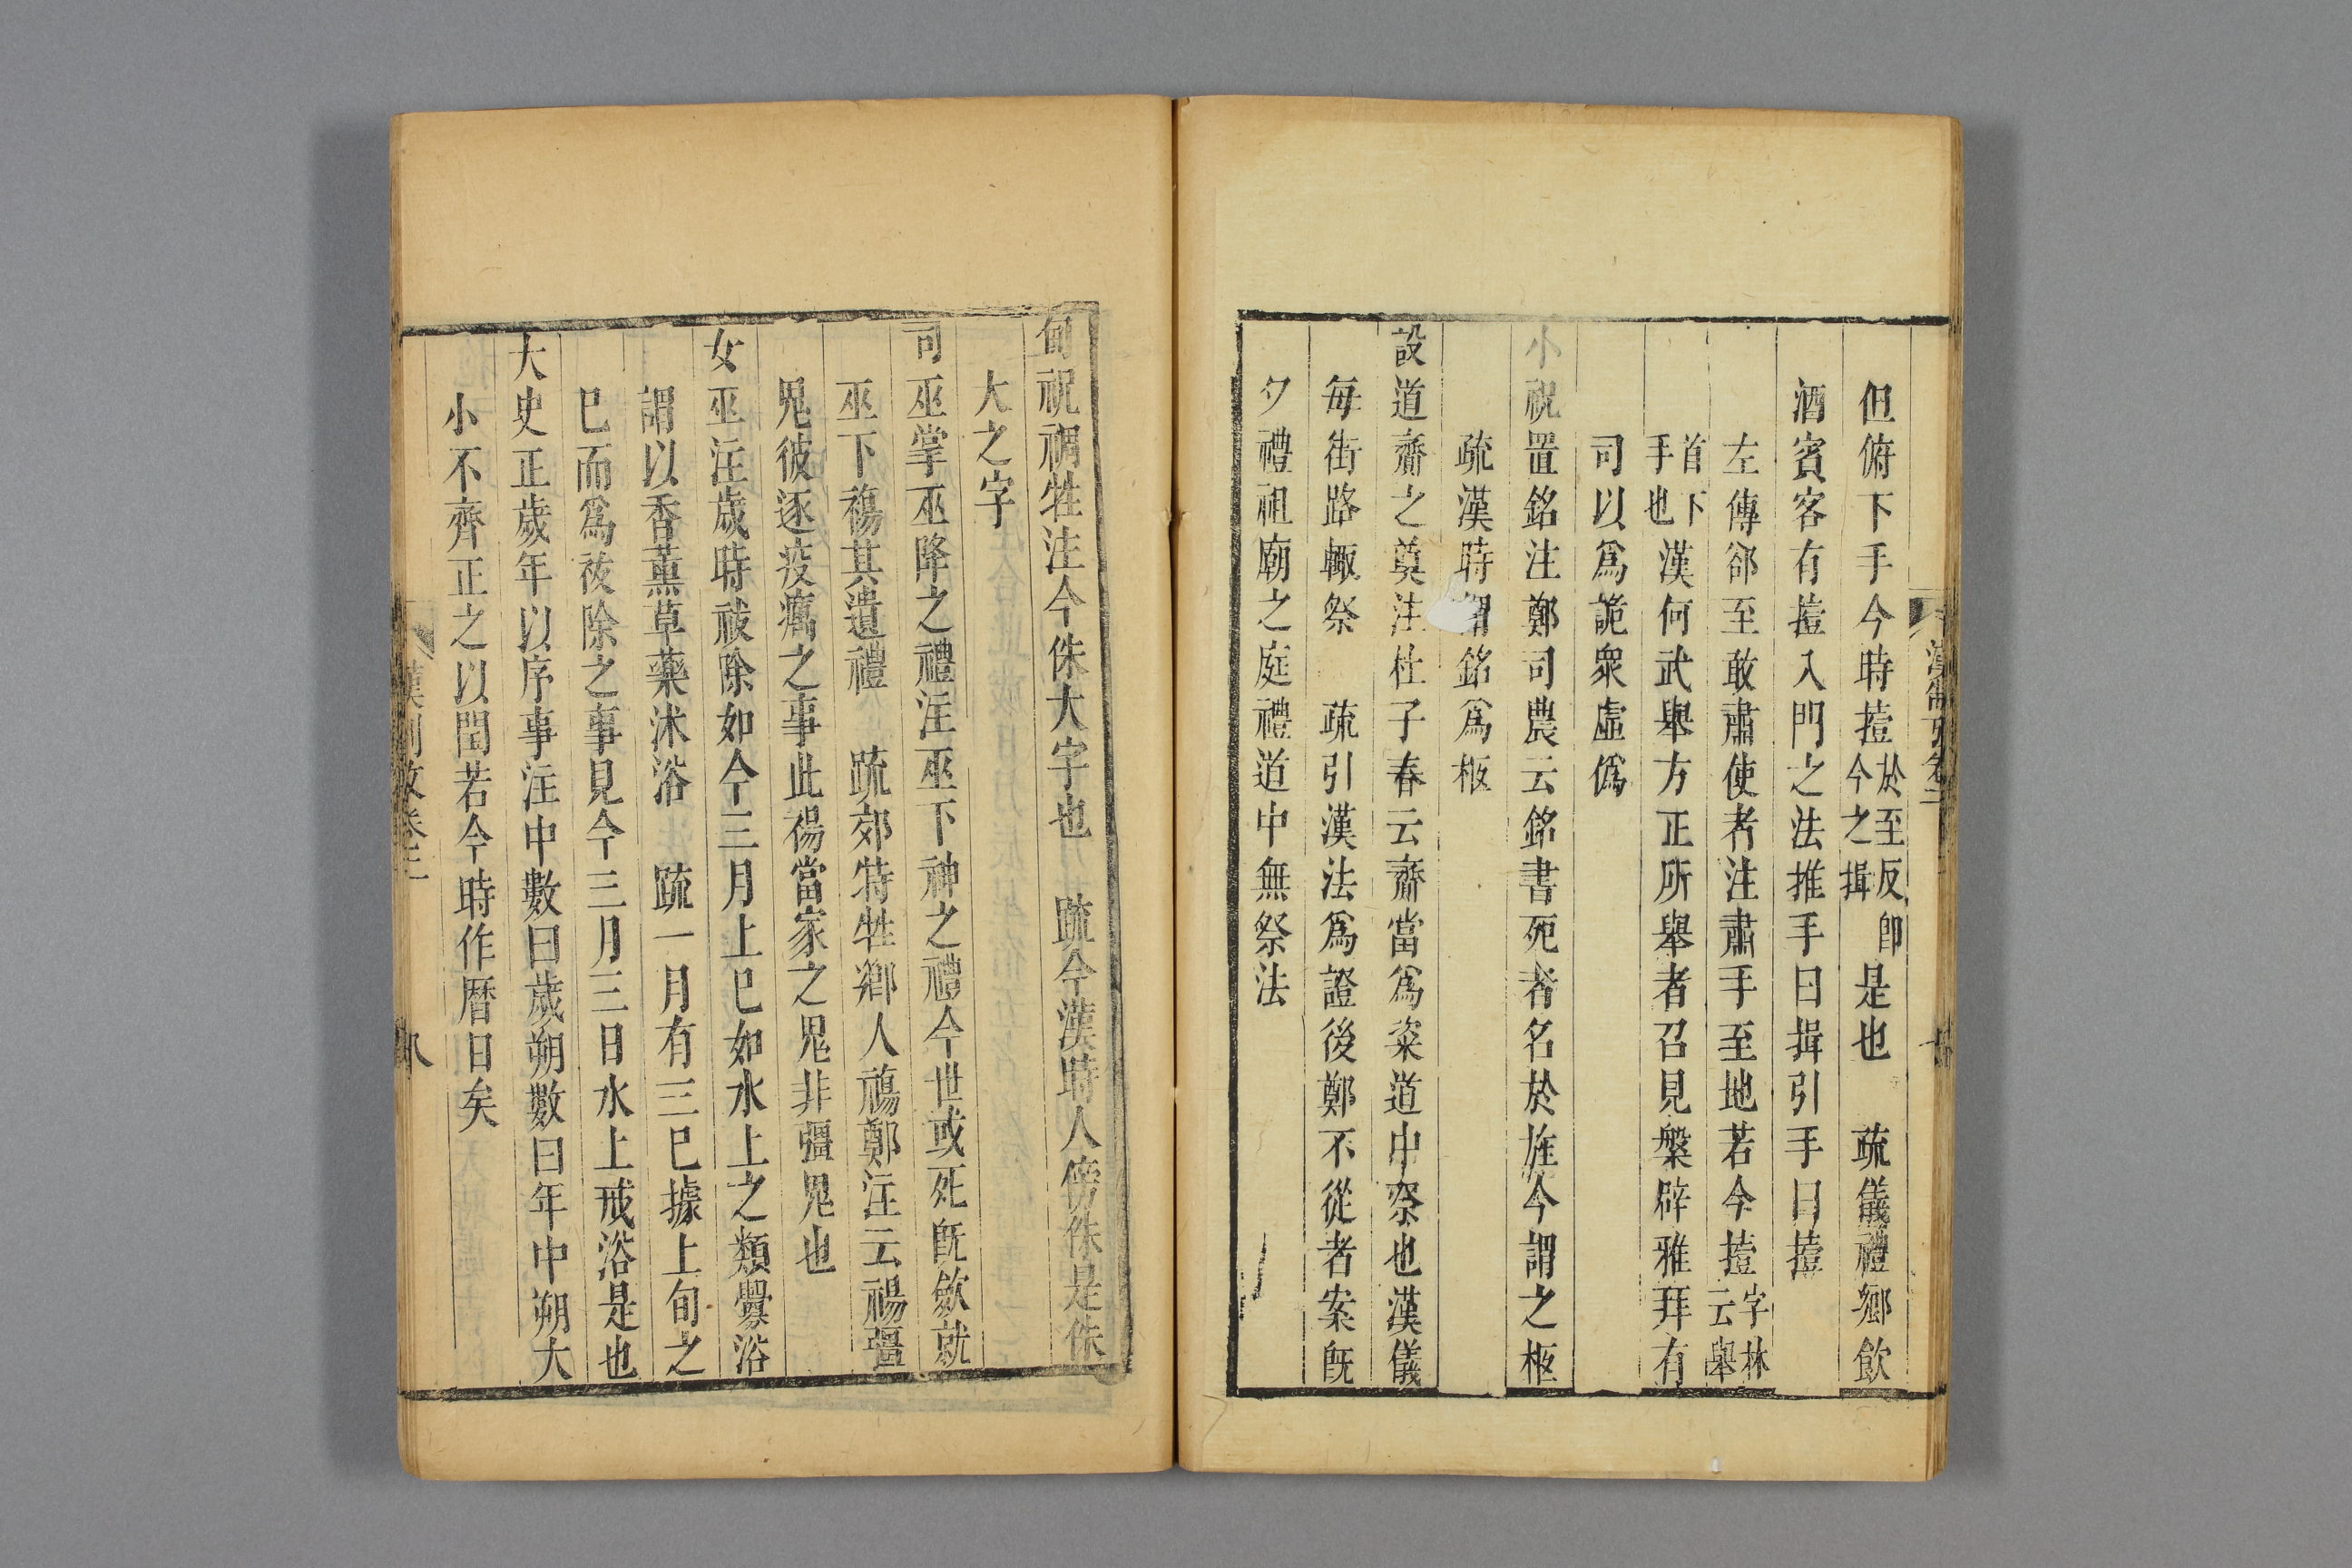 漢制攷卷二
但俯下手今時撎於至反即今之揖是也　疏儀禮鄉飲
酒賓客有撎入門之法推手曰揖引手曰撎
左傳郤至敢肅使者注肅手至地若今撎字林云舉
首下手也漢何武舉方正所舉者召見槃辟雅拜有
司以爲詭衆虛僞
小祝置銘注鄭司農云銘書死者名於旌今謂之柩
疏漢時謂銘爲柩
設道齎之奠注杜子春云齎當爲粢道中祭也漢儀
每街路輒祭　疏引漢法爲證後鄭不從者案旣
夕禮祖廟之庭禮道中無祭法
甸祝禂牲注今侏大字也　疏今漢時人傍侏是侏
大之字
司巫掌巫降之禮注巫下神之禮今世或死旣斂就
巫下禓其遺禮　疏郊特牲鄉人禓鄭注云禓彊
鬼彼逐疫癘之事此禓當家之鬼非彊鬼也
女巫注歲時祓除如今三月上巳如水上之類釁浴
謂以香薰草藥沐浴　疏一月有三巳據上旬之
巳而爲祓除之事見今三月三日水上戒浴是也
大史正歲年以序事注中數曰歲朔數曰年中朔大
小不齊正之以閏若今時作曆日矣
漢制攷卷二
八